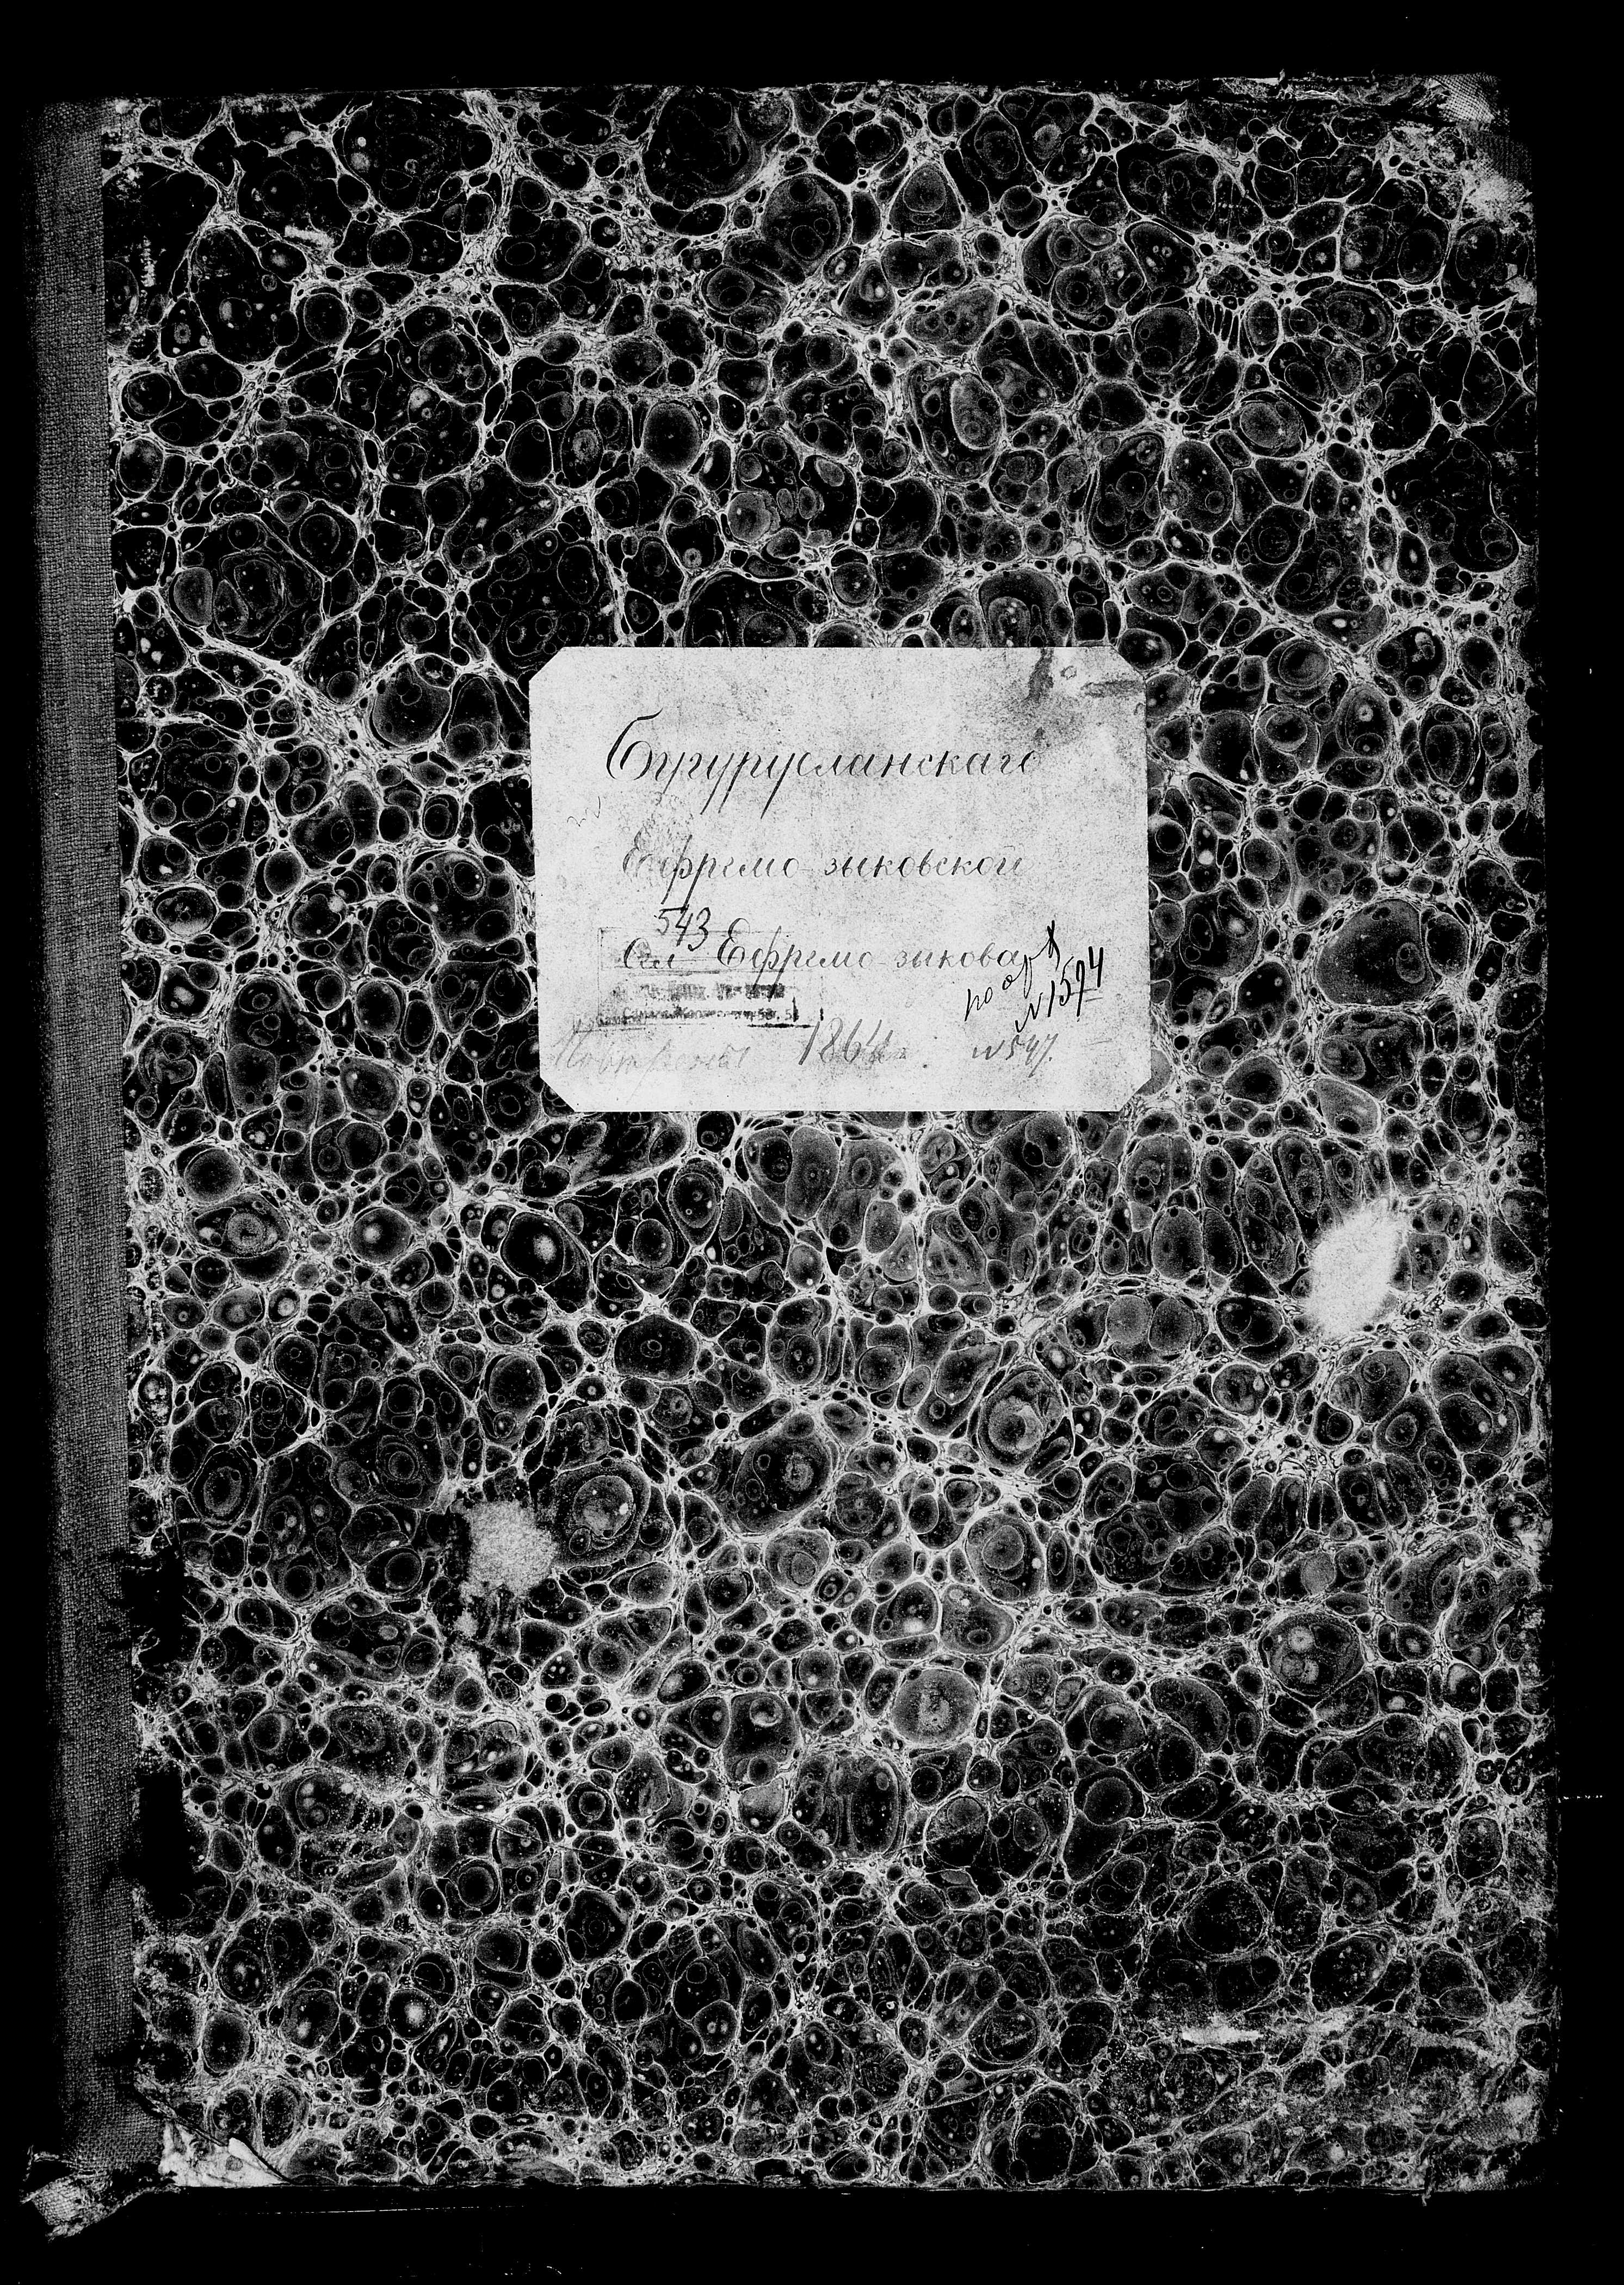 Бугурусланскаго
Ефремо-зыковской
543
Сел Ефремо-зыкова
по ар
№1594
1864
№547.